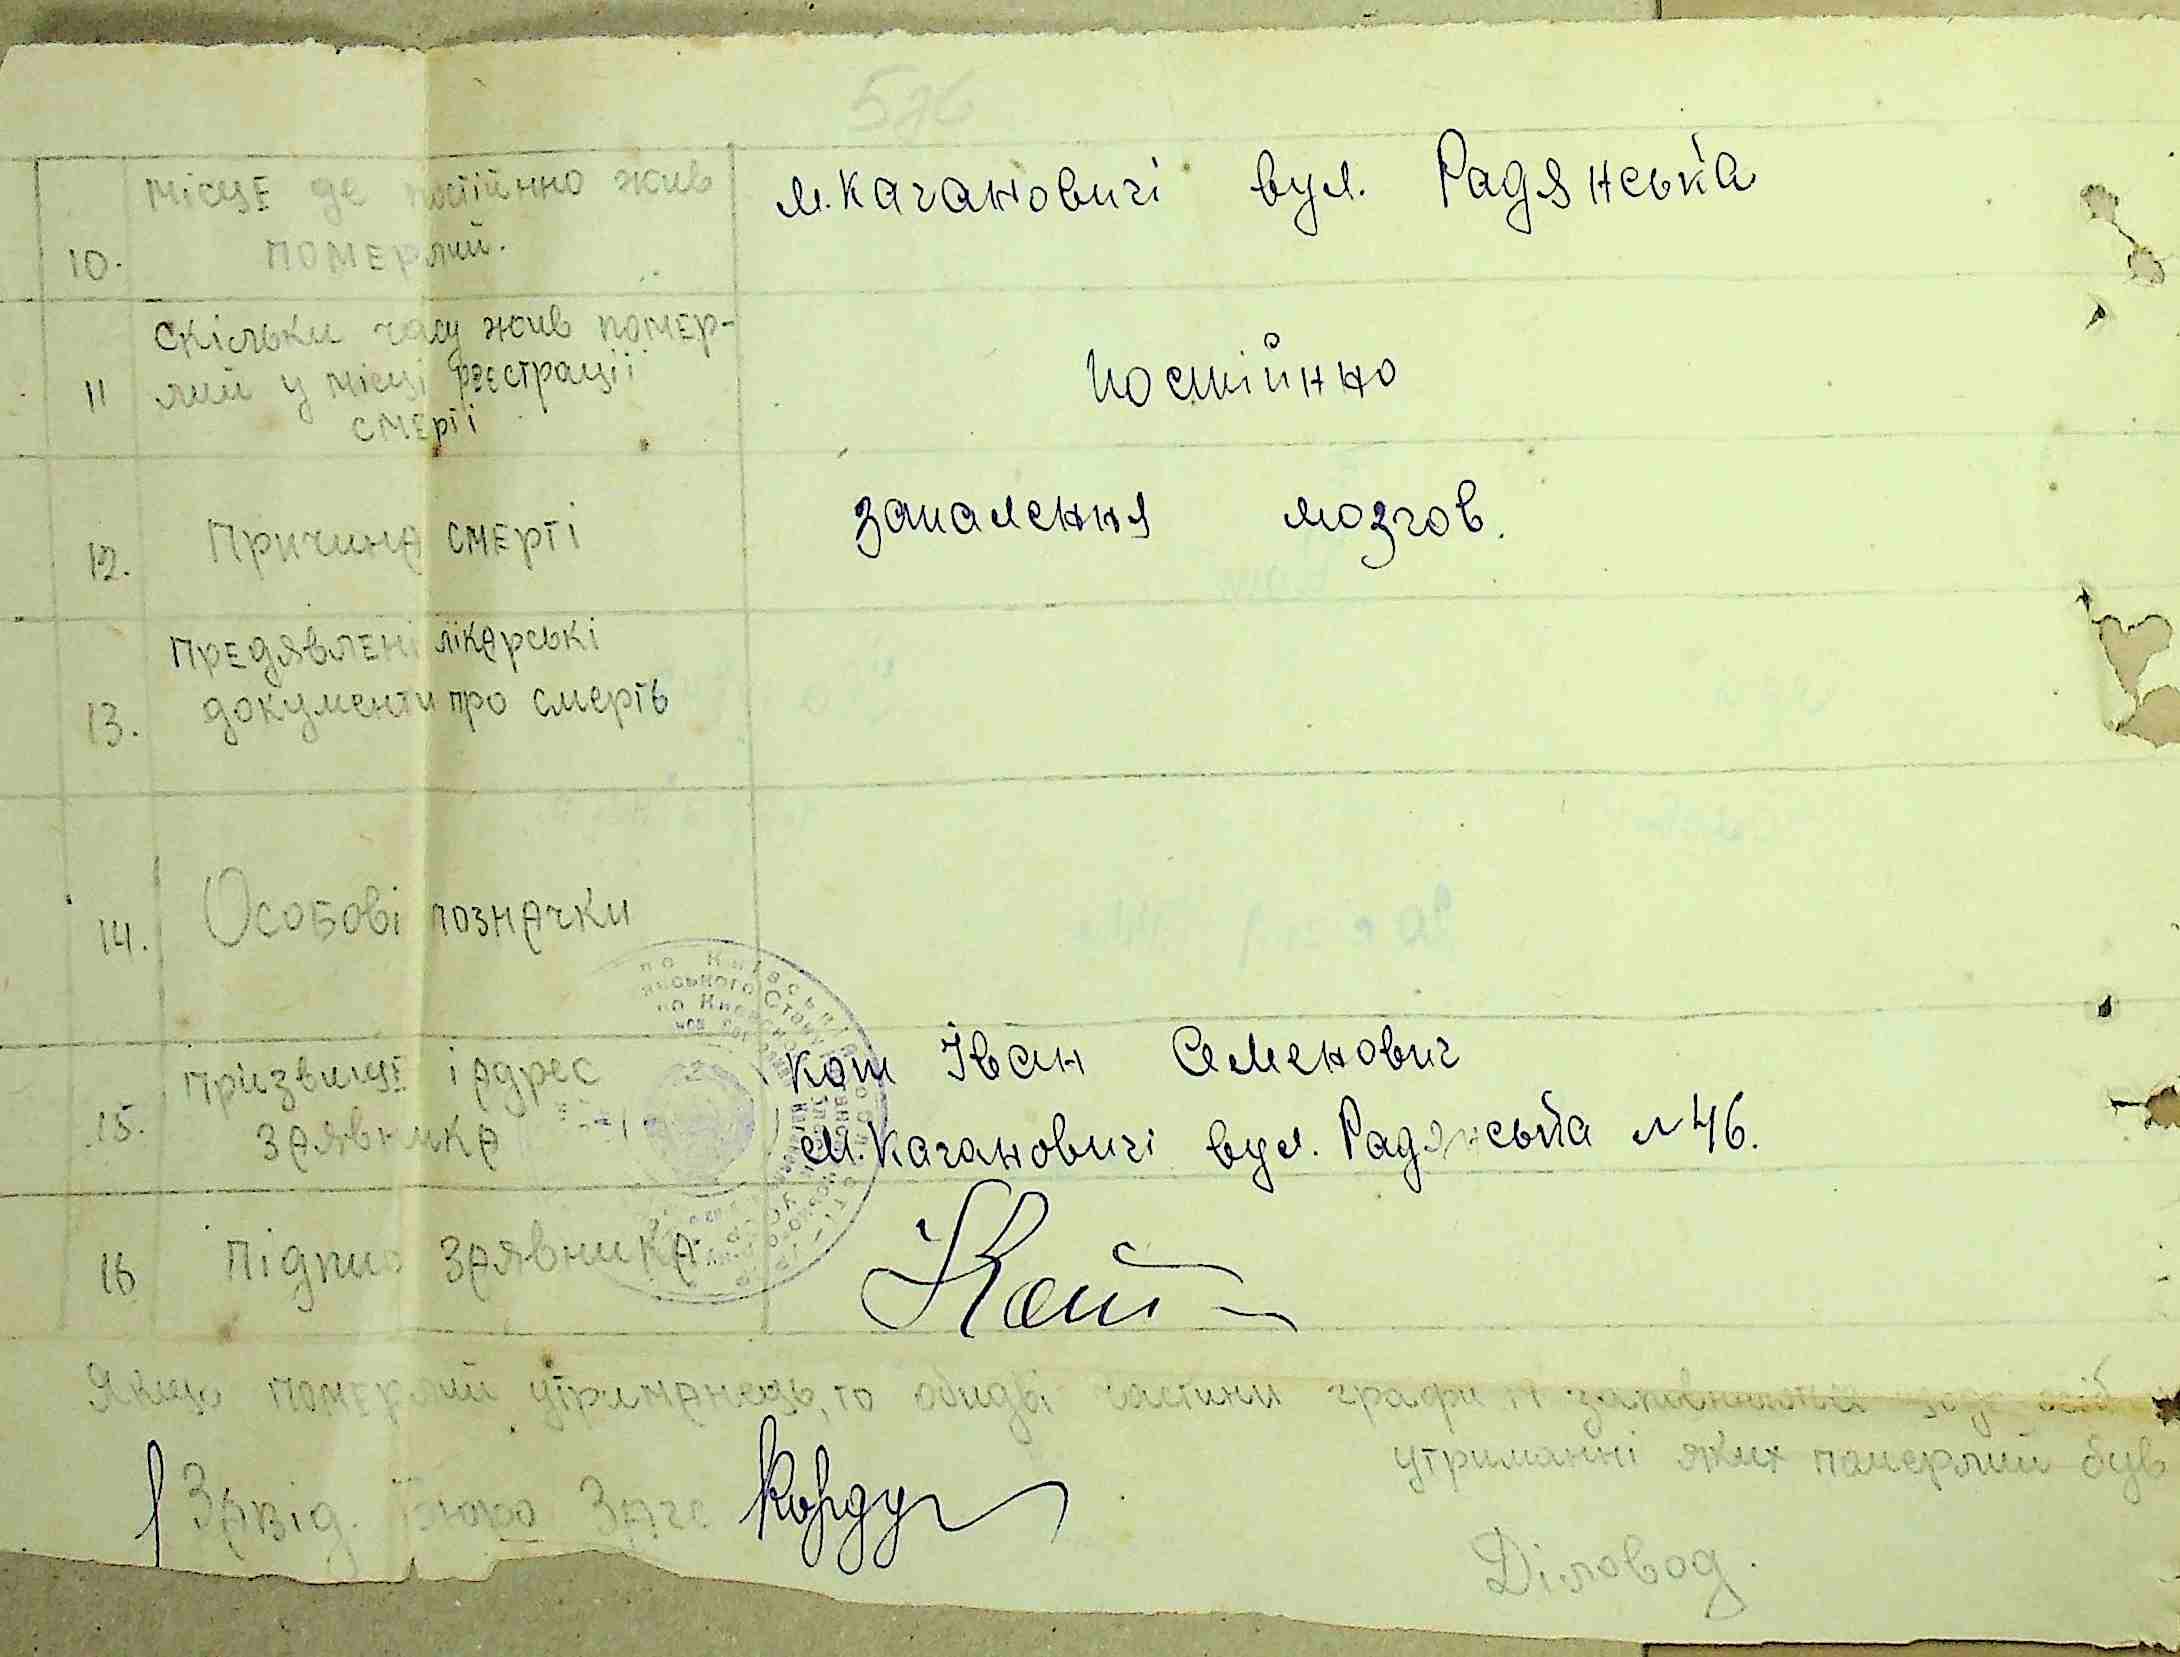 576
10. Місце де постійно жив
померлий.
м. Кагановичі вул. Радянська
11 Скільки часу жив помер-
лий у місці реєстрації
смерті
постійно
12. Причина смерті
запалення мозгов.
13. Предявлені лікарські
документи про смерть
14. Особові позначки
15. Призвище і адрес
заявника
Кот Іван Семенович
м. Кагановичі вул. Радянська №46.
16 Підпис заявника
Кот
Якщо померлий утриманець, то обидві частини графи заповнюються щодо осіб
утриманні яких померлий був
Завід. Бюро Загс
Діловод.